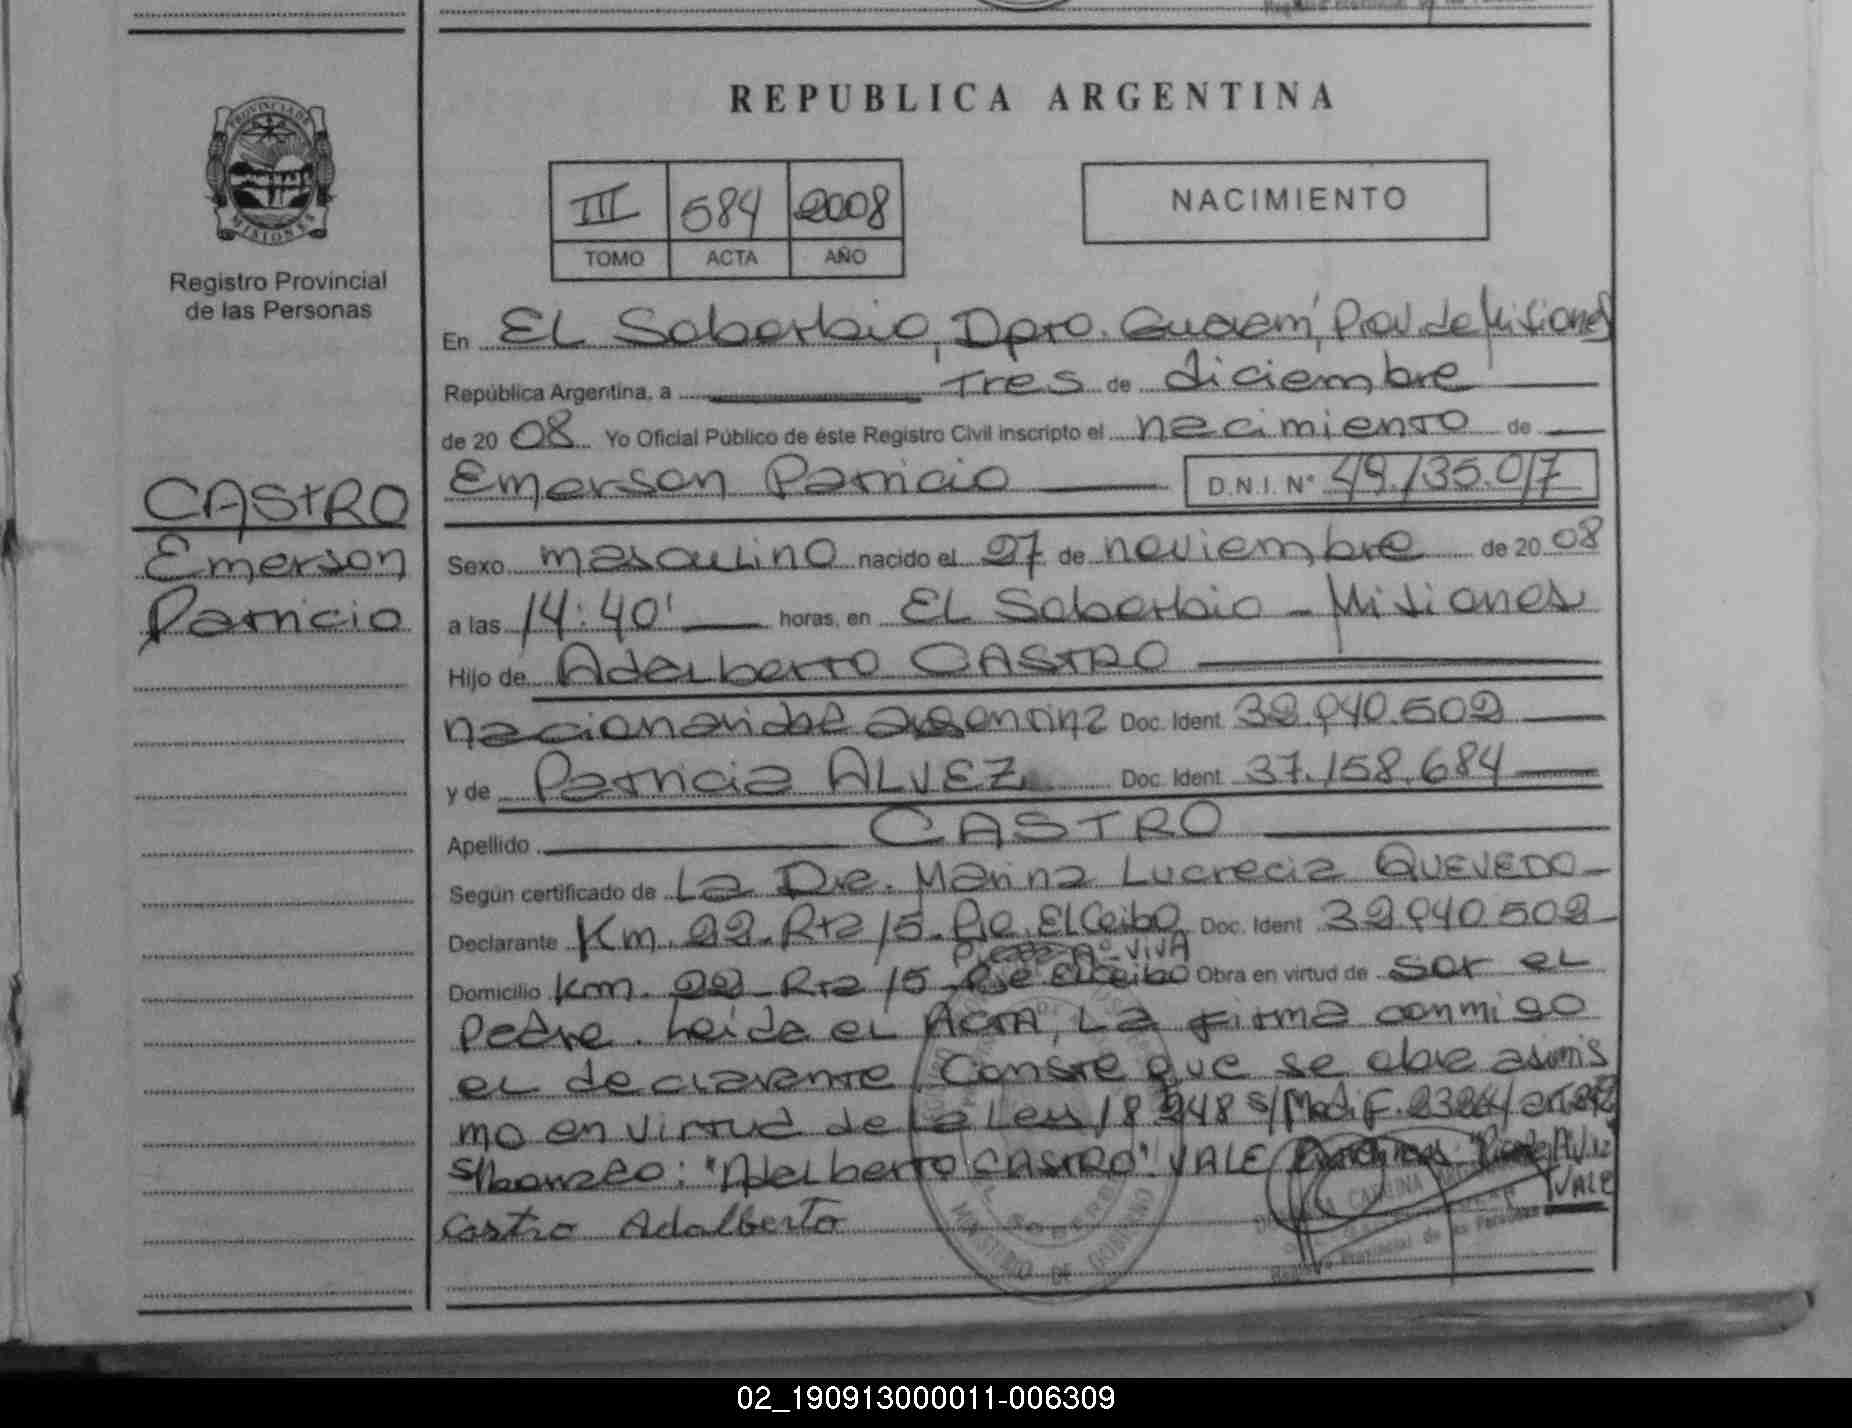 PROVINCIA DE
MISIONES
Registro Provincial
de las Personas
CASTRO
Emerson
Patricio
REPUBLICA ARGENTINA
III 584 2008
TOMO ACTA AÑO
NACIMIENTO
En EL Soberbio, Dpto. Guaraní, Prov. de Misiones
República Argentina, a Tres de diciembre
de 20 08 Yo Oficial Público de éste Registro Civil inscripto el nacimiento de
Emerson Patricio D.N.I. N° 49.135.017
Sexo masculino nacido el 27 de noviembre de 20 08
a las 14:40' horas, en EL Soberbio - Misiones
Hijo de Adelberto CASTRO
nacionalidad argentina Doc. Ident. 32.040.502
y de Patricia ALVEZ Doc. Ident. 37.158.684
Apellido CASTRO
Según certificado de La Dra. Marina Lucrecia QUEVEDO
Declarante Km. 22. Rta 15. Pje. El Ceibo Doc. Ident. 32040502
Domicilio Km. 22 Rta 15 Pje El Ceibo Obra en virtud de ser el
Padre. Leida el ACTA, La firma conmigo
el declarante. Conste que se obra asimis
mo en virtud de la Ley 18.248 s/Modif. 23264/
"Adelberto CASTRO". VALE
VALE
Castro Adalberto
MINISTERIO DE GOBIERNO
02_190913000011-006309